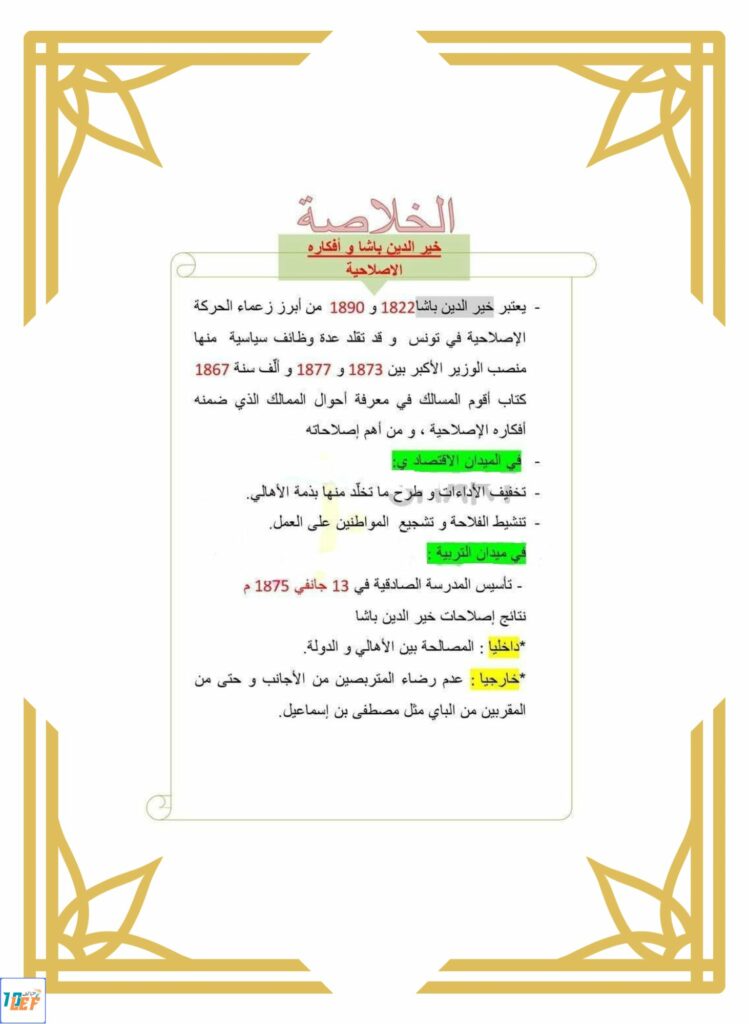 الخلاصة
خير الدين باشا و أفكاره
الاصلاحية
- يعتبر خير الدين باشا1822 و 1890 من أبرز زعماء الحركة
الإصلاحية في تونس و قد تقلد عدة وظائف سياسية منها
منصب الوزير الأكبر بين 1873 و 1877 و ألّف سنة 1867
كتاب أقوم المسالك في معرفة أحوال الممالك الذي ضمنه
أفكاره الإصلاحية ، و من أهم إصلاحاته
- في الميدان الاقتصاد ي:
- تخفيف الأداءات و طرح ما تخلّد منها بذمة الأهالي.
- تنشيط الفلاحة و تشجيع المواطنين على العمل.
في ميدان التربية :
- تأسيس المدرسة الصادقية في 13 جانفي 1875 م
نتائج إصلاحات خير الدين باشا
*داخليا : المصالحة بين الأهالي و الدولة.
*خارجيا : عدم رضاء المتربصين من الأجانب و حتى من
المقربين من الباي مثل مصطفى بن إسماعيل.